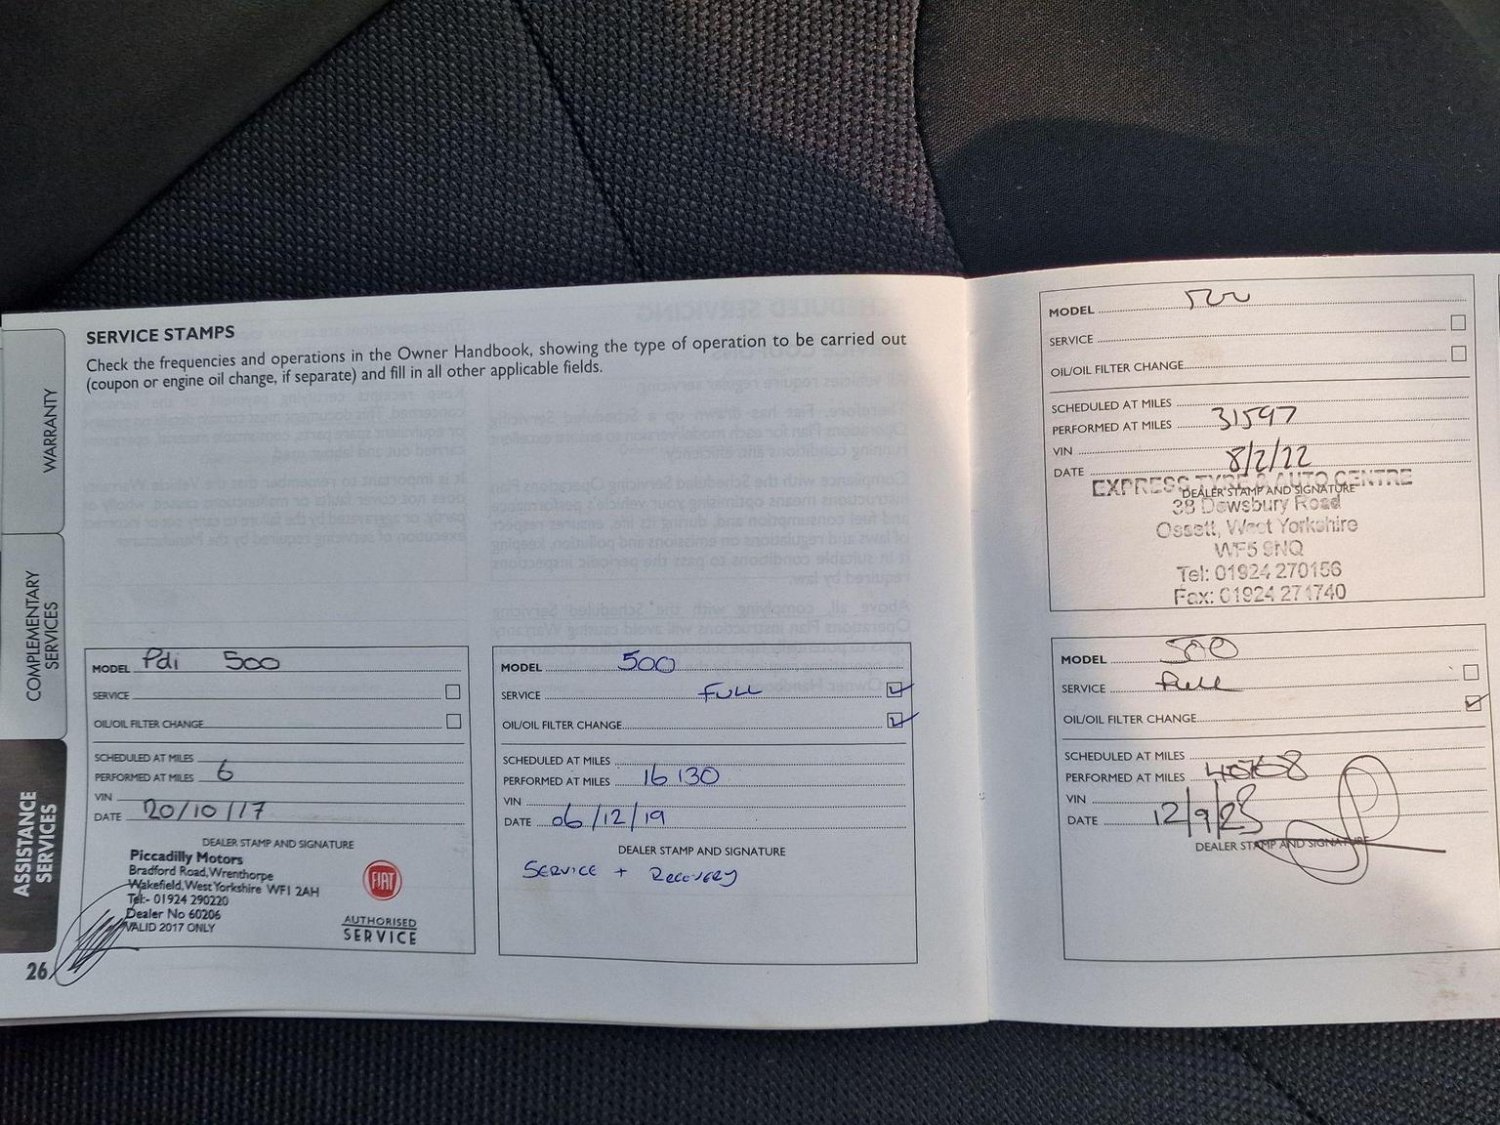 SERVICE STAMPS
Check the frequencies and operations in the Owner Handbook, showing the type of operation to be carried out
(coupon or engine oil change, if separate) and fill in all other applicable fields.
WARRANTY
COMPLEMENTARY
SERVICES
ASSISTANCE
SERVICES
MODEL Pdi 500
SERVICE
OIL/OIL FILTER CHANGE
SCHEDULED AT MILES
PERFORMED AT MILES 6
VIN
DATE 20/10/17
DEALER STAMP AND SIGNATURE
Piccadilly Motors
Bradford Road, Wrenthorpe
Wakefield, West Yorkshire WF1 2AH
Tel:- 01924 290220
Dealer No 60206
VALID 2017 ONLY
FIAT
AUTHORISED
SERVICE
26
MODEL 500
SERVICE FULL
OIL/OIL FILTER CHANGE
SCHEDULED AT MILES
PERFORMED AT MILES 16130
VIN
DATE 06/12/19
DEALER STAMP AND SIGNATURE
SERVICE + RECOVERY
MODEL 500
SERVICE
OIL/OIL FILTER CHANGE
SCHEDULED AT MILES
PERFORMED AT MILES 31597
VIN
DATE 8/2/22
DEALER STAMP AND SIGNATURE
EXPRESS TYRE & AUTO CENTRE
38 Dewsbury Road
Ossett, West Yorkshire
WF5 9NQ
Tel: 01924 270156
Fax: 01924 271740
MODEL 500
SERVICE Full
OIL/OIL FILTER CHANGE
SCHEDULED AT MILES
PERFORMED AT MILES
VIN
DATE 12/9/23
DEALER STAMP AND SIGNATURE